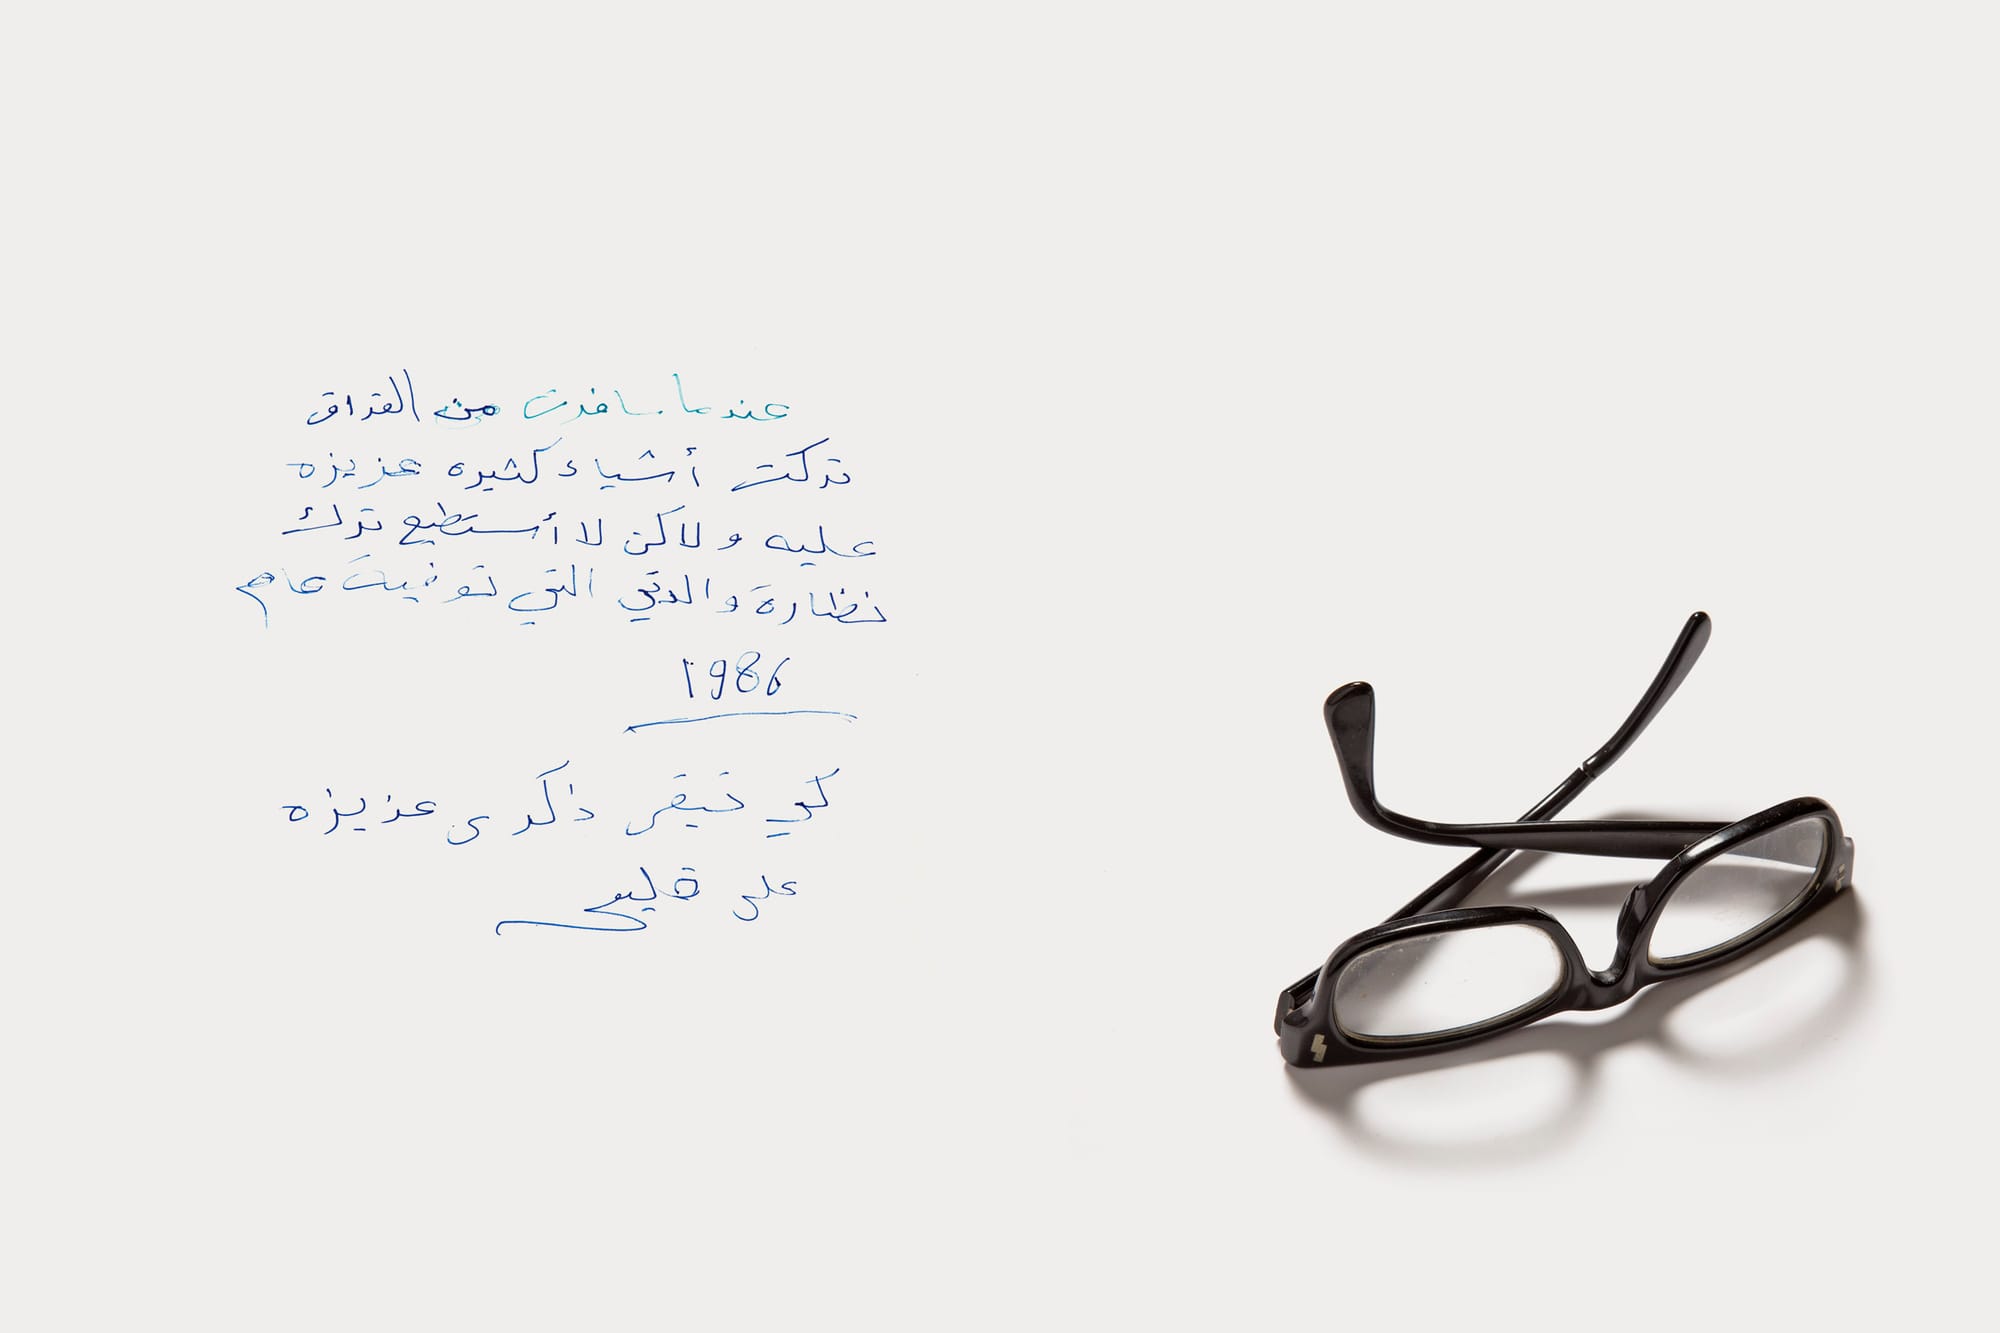 عندما سافرت من العراق
تركت أشياء كثيره عزيزه
عليه ولاكن لا أستطيع ترك
نظارة والدتي التي توفيت عام
1986
كي تبقى ذكرى عزيزه
على قلبي